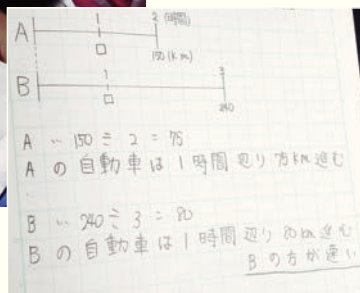 1 2 (時間)
A
□ 150 (km)
1 3
B
□ 240
A … 150 ÷ 2 = 75
A の自動車は1時間辺り75km進む
B … 240 ÷ 3 = 80
B の自動車は1時間辺り80km進む
Bの方が速い